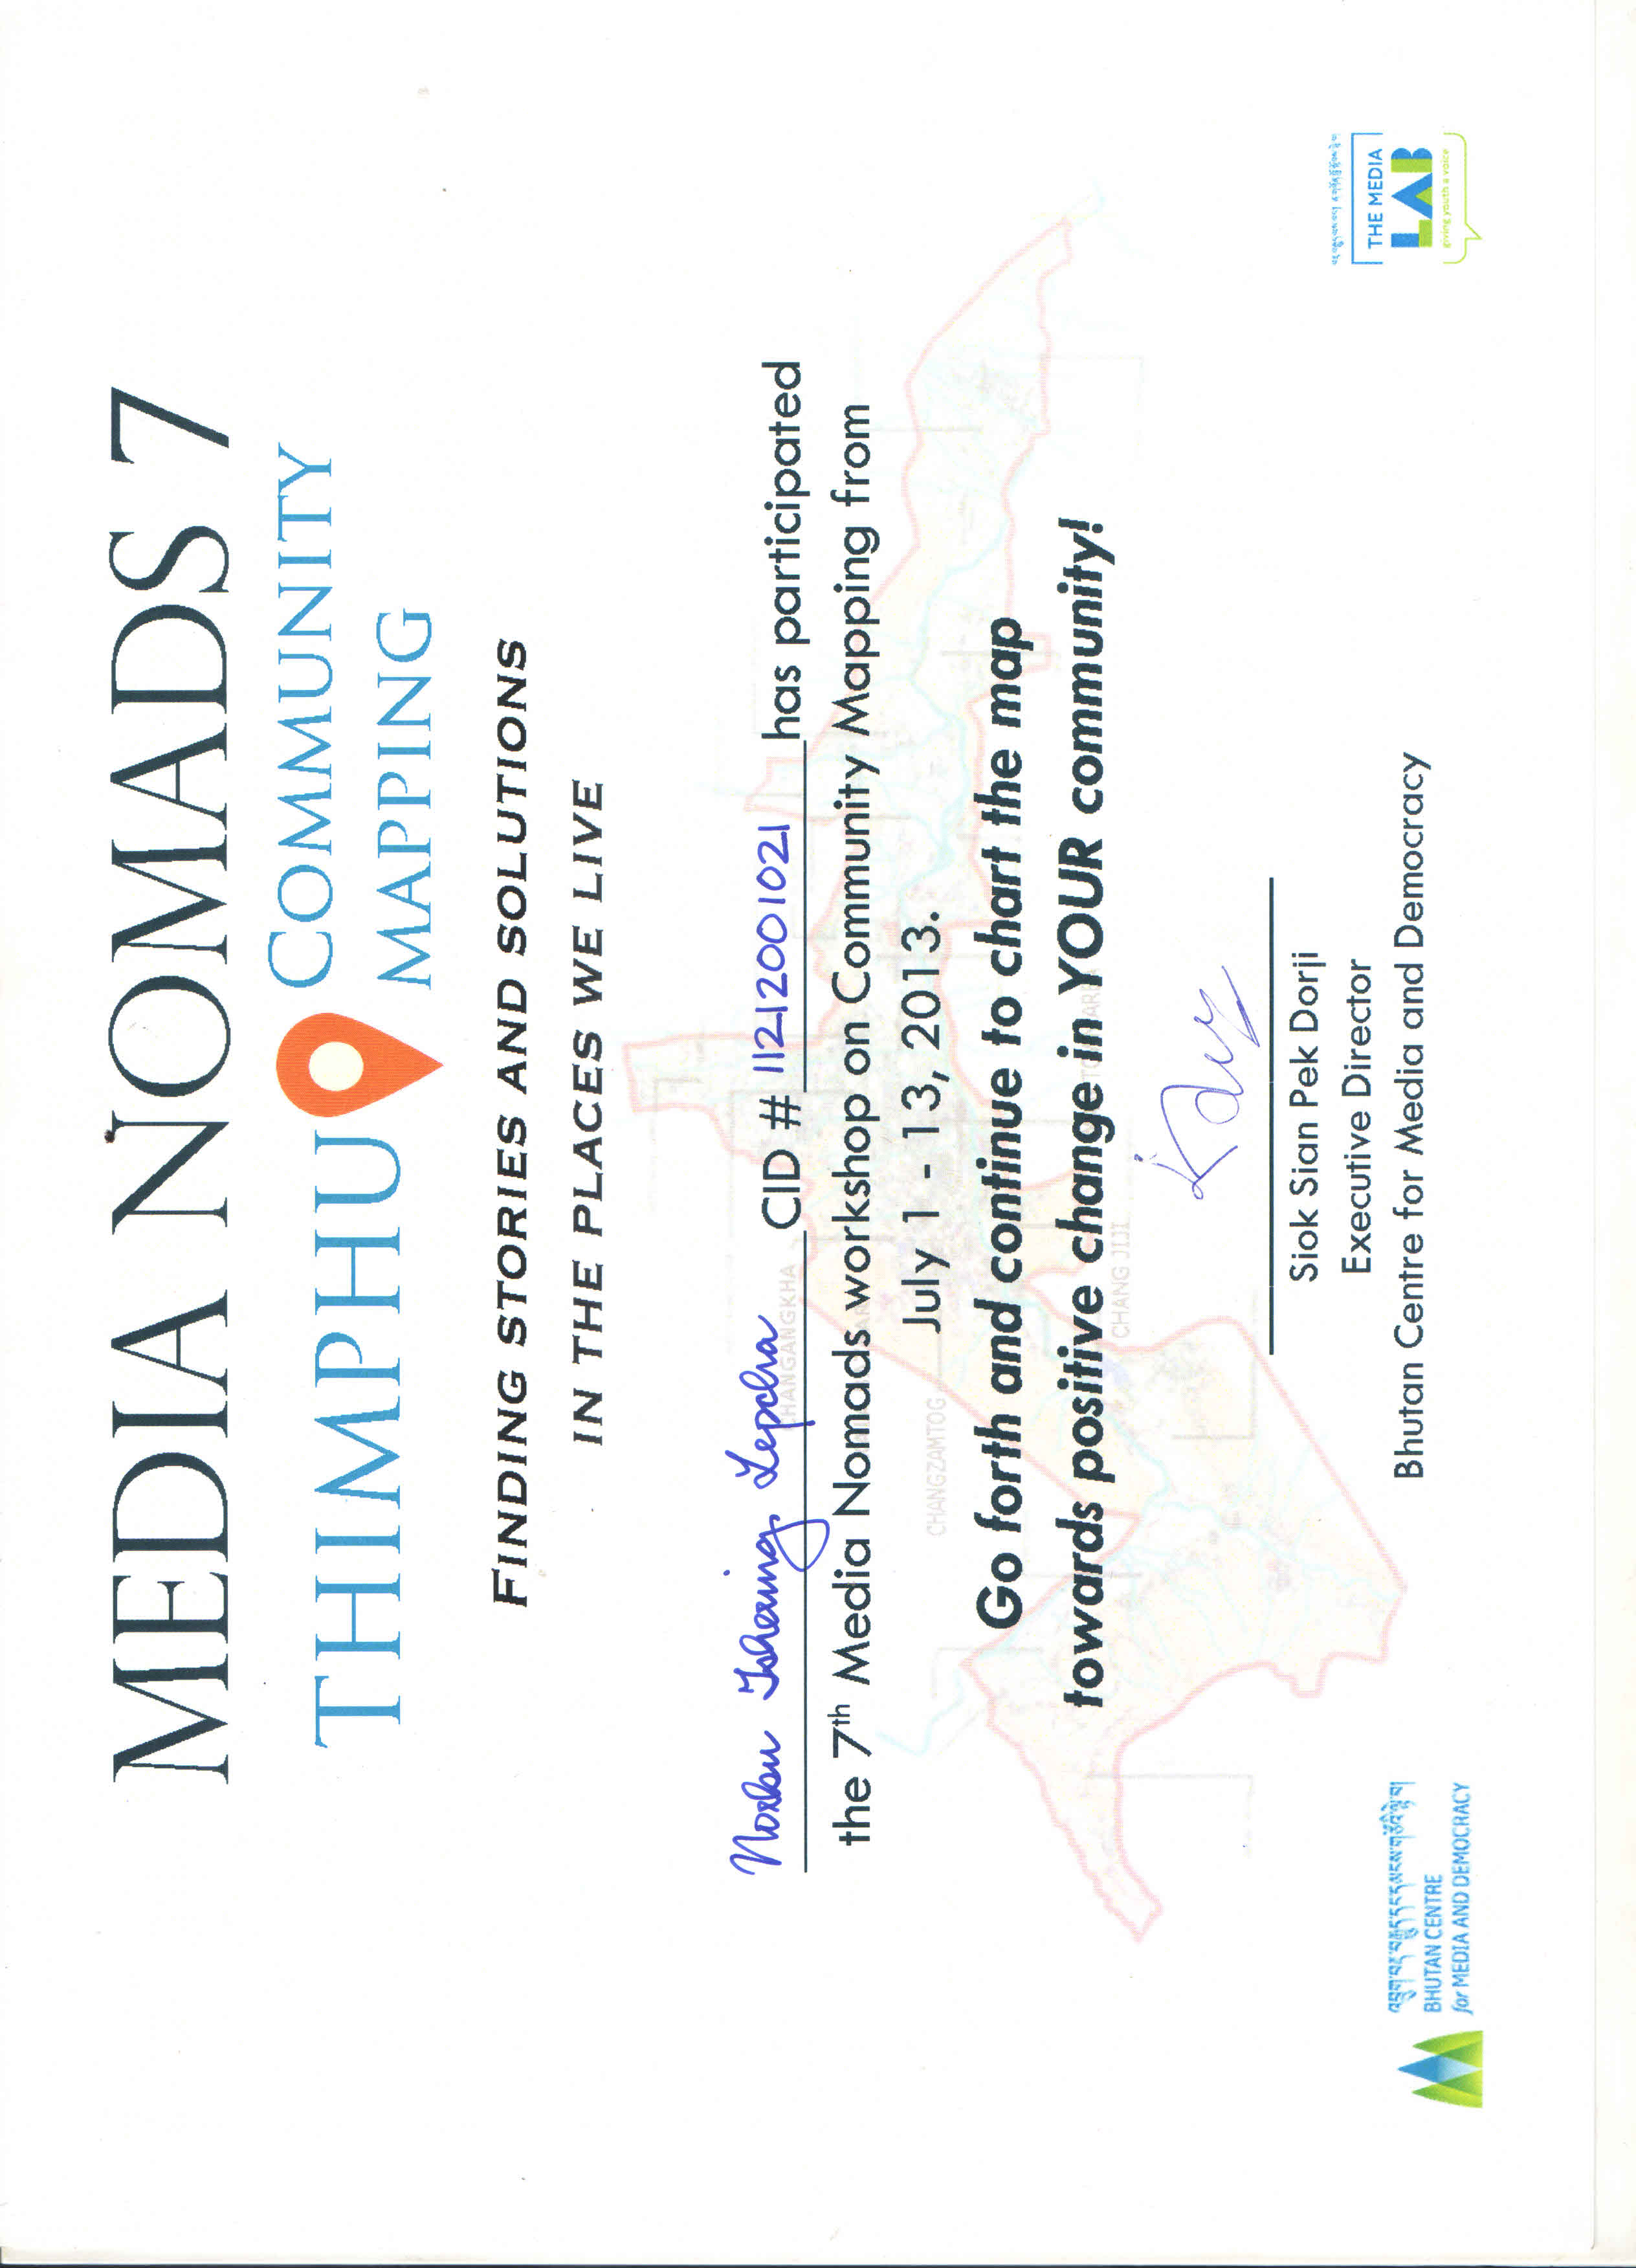 MEDIA NOMADS 7
THIMPHU
COMMUNITY
MAPPING
FINDING STORIES AND SOLUTIONS
IN THE PLACES WE LIVE
Norbu Tshering Lepcha CID # 11212001021 has participated
CHANGANGKHA
the 7th Media Nomads workshop on Community Mapping from
July 1 - 13, 2013.
CHANGZAMTOG
Go forth and continue to chart the map
towards positive change in YOUR community!
CHANG JIJI
Siok Sian Pek Dorji
Executive Director
Bhutan Centre for Media and Democracy
འབྲུག་བརྡ་བརྒྱུད་དང་དམངས་གཙོའི་ལྟེ་བ།
BHUTAN CENTRE
for MEDIA AND DEMOCRACY
THE MEDIA
LAB
giving youth a voice